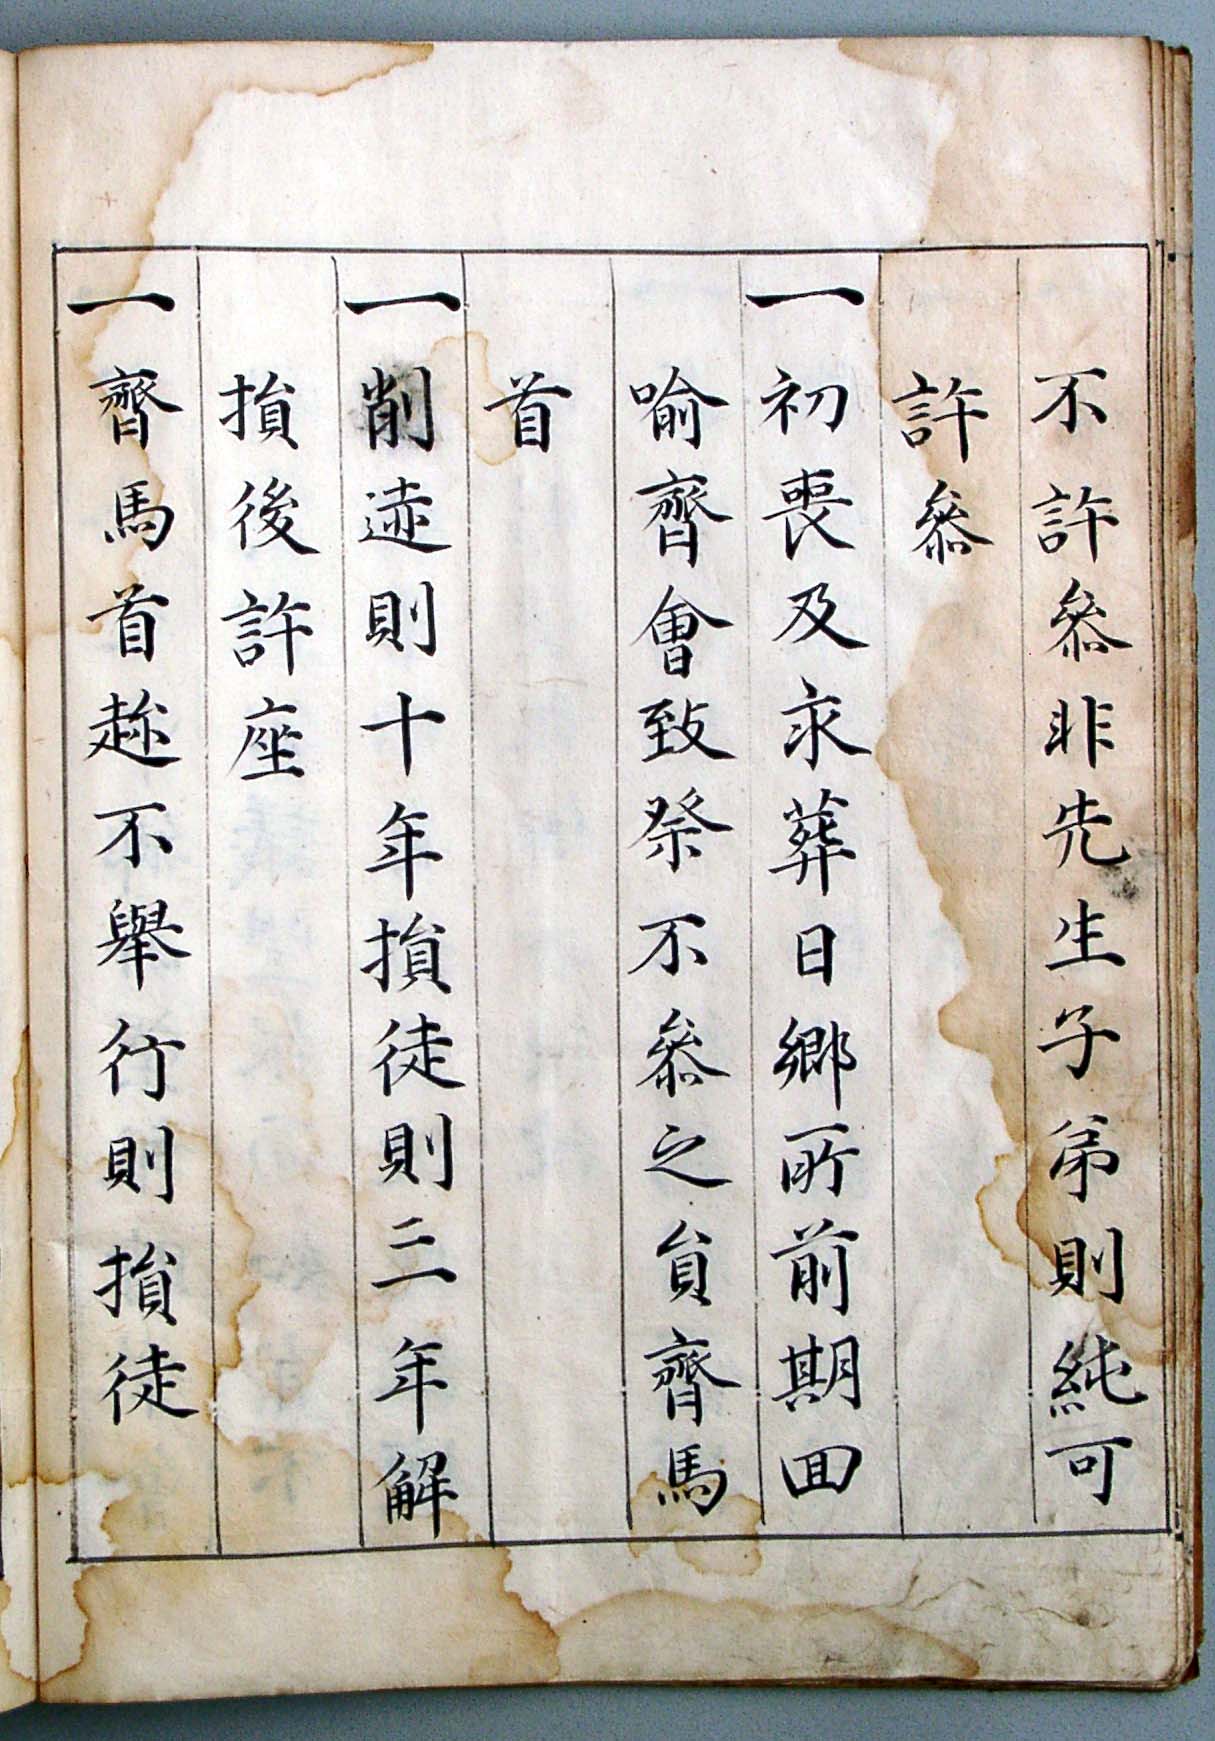 不許叅非先生子弟則純可
許叅
一初喪及永葬日鄕所前期回
喻齊會致祭不叅之員齊馬
首
一削迹則十年損徒則三年解
損後許座
一齊馬首趂不擧行則損徒